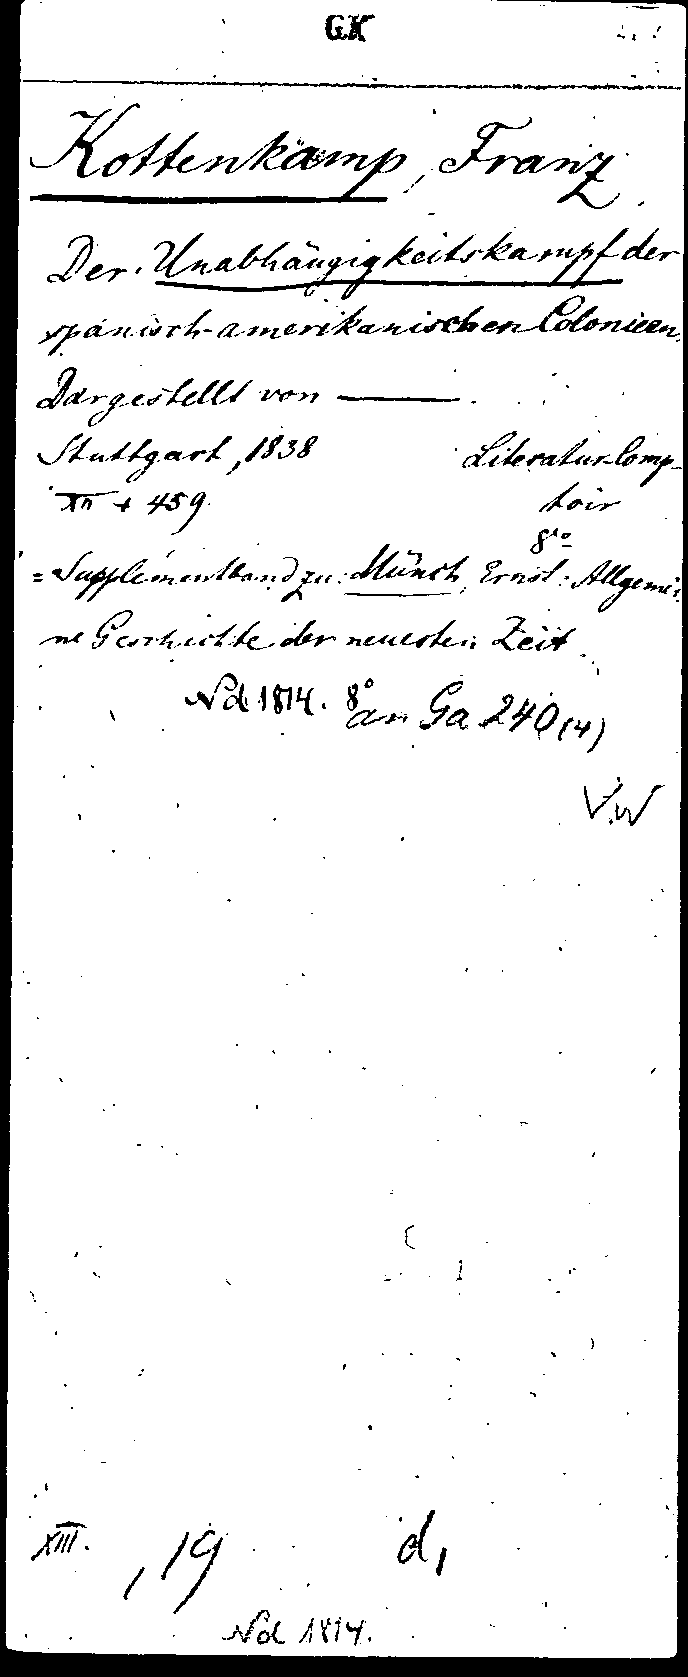 GK
Kottenkamp, Franz
Der Unabhängigkeitskampf der
spanisch-amerikanischen Colonieen.
Dargestellt von ———.
Stuttgart, 1838 Literatur-Comp-
XII + 459 toir
8°
= Supplementband zu: Münch, Ernst: Allgemei-
ne Geschichte der neuesten Zeit
Nd 1814. 8°
an Ga 240 (4)
V.W
XIII. , 19 d,
Nd 1814.